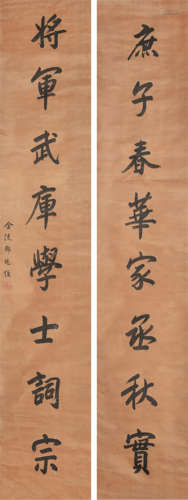 庶子春華家丞秋實
將軍武庫學士詞宗
金陵